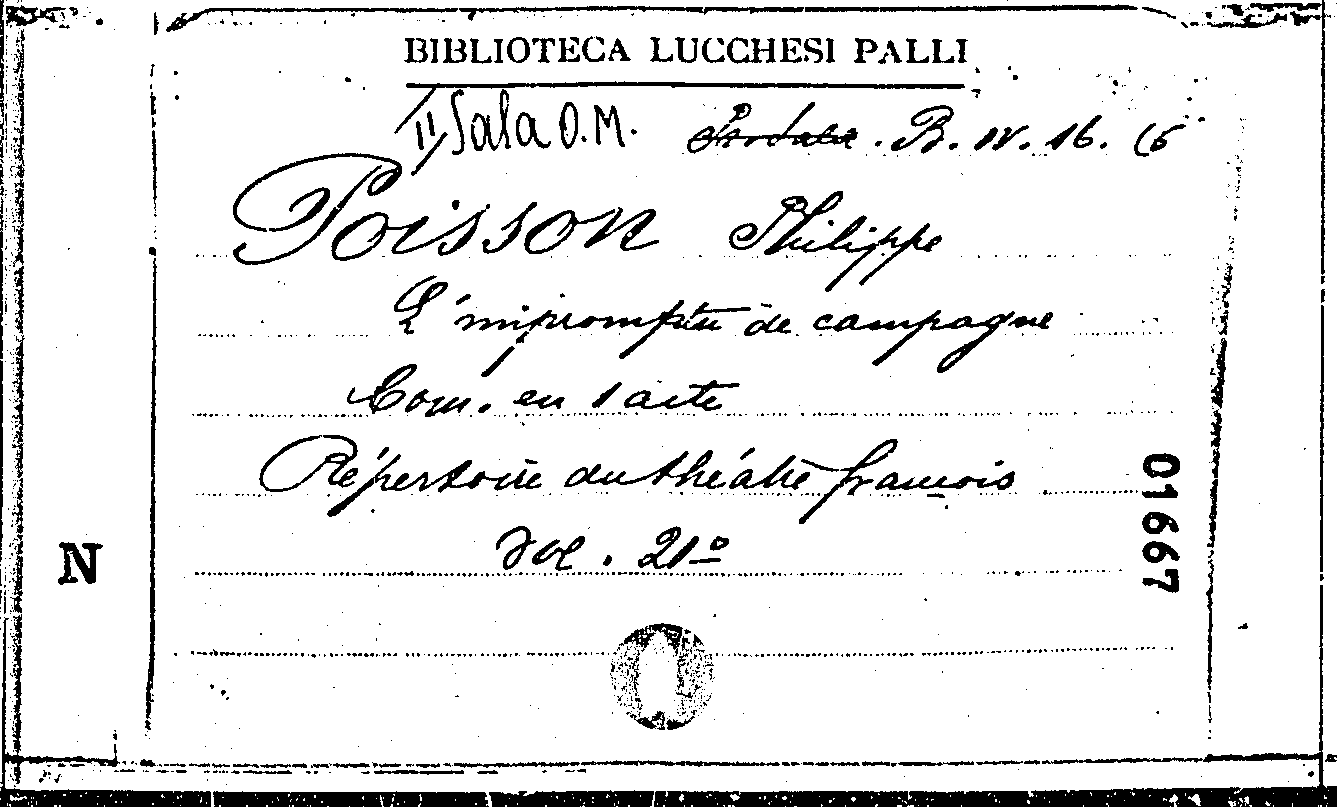 BIBLIOTECA LUCCHESI PALLI
II Sala O.M. B. IV. 16. (6
Poisson Philippe
L'impromptu de campagne
Com. en 1 acte
Répertoire du théatre françois
Vol. 21º
N
01667